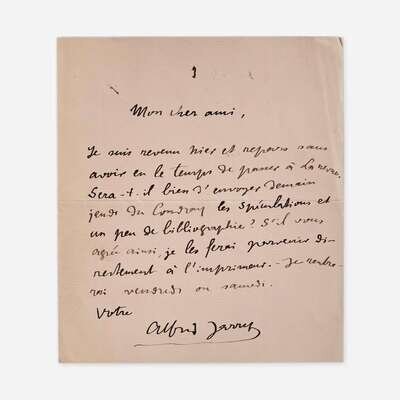 Mon cher ami,
Je suis revenu hier et repars sans
avoir eu le temps de passer à La revue.
Sera-t-il bien d'envoyer demain
jeudi du Coudray les Spéculations et
un peu de bibliographie? S'il vous
agrée ainsi, je les ferai parvenir di-
rectement à l'imprimeur. - Je rentre-
rai vendredi ou samedi.
Votre
Alfred Jarry